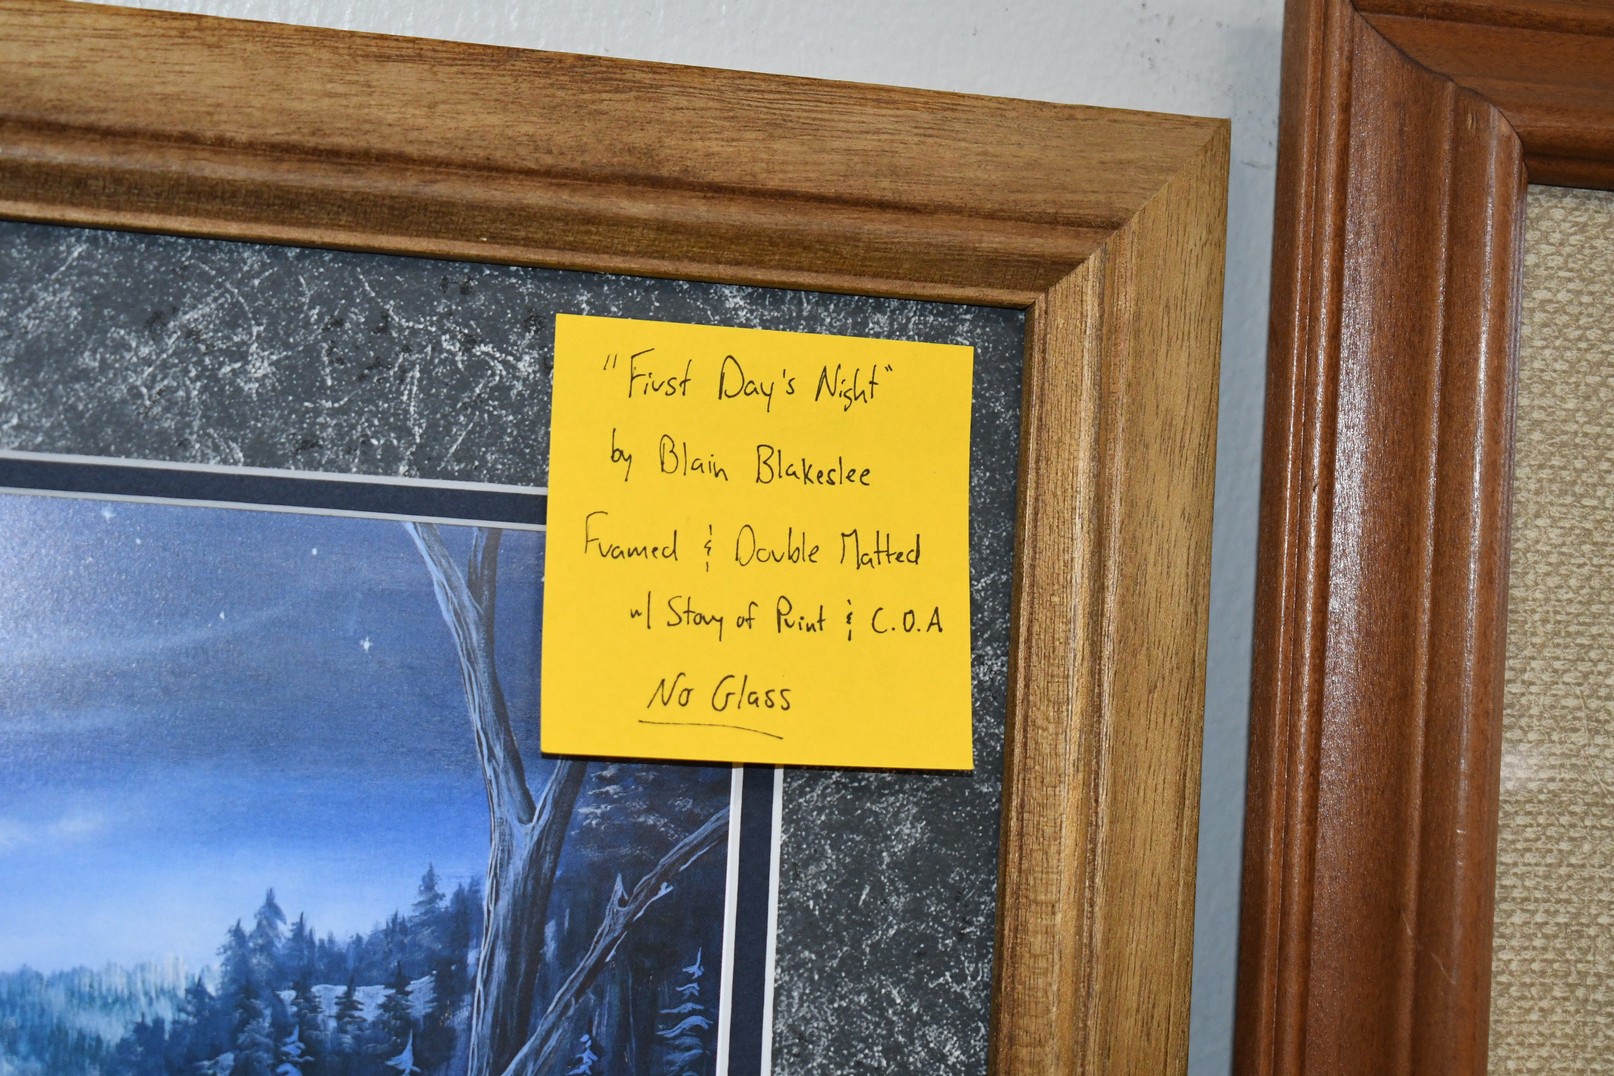 "First Day's Night"
by Blain Blakeslee
Framed & Double Matted
w/ Story of Print & C.O.A
No Glass